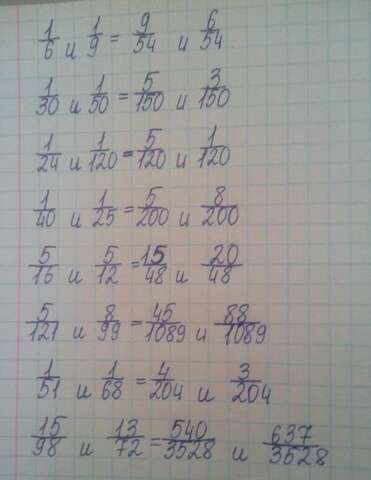 1/6 и 1/9 = 9/54 и 6/54
1/30 и 1/50 = 5/150 и 3/150
1/24 и 1/120 = 5/120 и 1/120
1/40 и 1/25 = 5/200 и 8/200
5/16 и 5/12 = 15/48 и 20/48
5/121 и 8/99 = 45/1089 и 88/1089
1/51 и 1/68 = 4/204 и 3/204
15/98 и 13/72 = 540/3528 и 637/3528